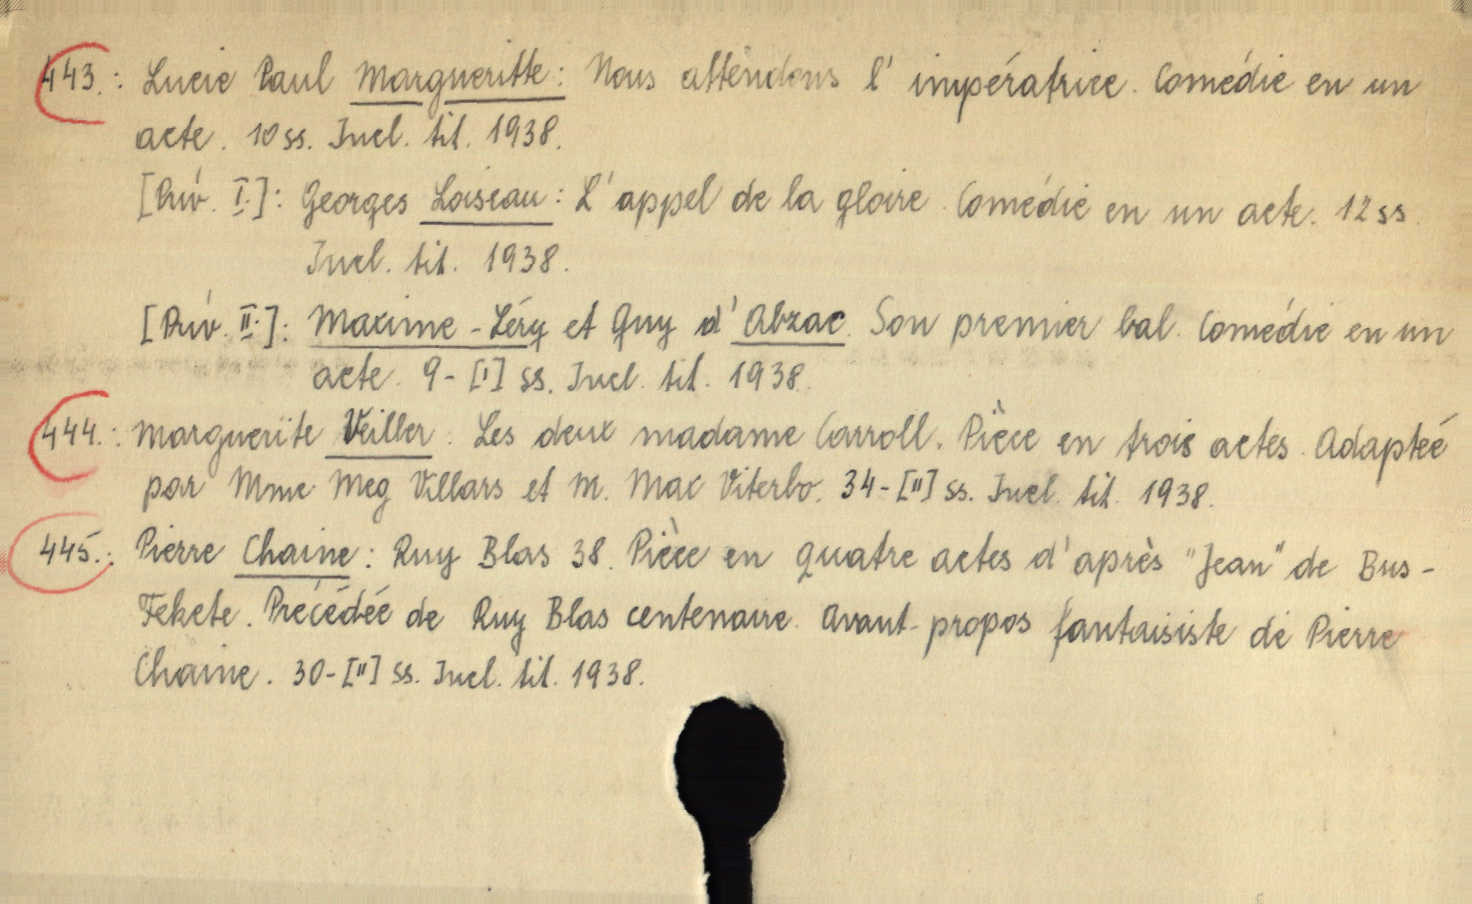 443.: Lucie Paul Margueritte: Nous attendons l' impératrice. Comédie en un
acte. 10 ss. Incl. tit. 1938.
[Přív. I.]: Georges Loiseau: L'appel de la gloire. Comédie en un acte. 12 ss.
Incl. tit. 1938.
[Přív. II.]: Maxime-Léry et Guy d'Abzac. Son premier bal. Comédie en un
acte. 9-[I] ss. Incl. tit. 1938.
444.: Marguerite Veiller. Les deux madame Carroll. Pièce en trois actes. Adapteé
par Mme Meg Villars et M. Mac Viterbo. 34-[II] ss. Incl. tit. 1938.
445.: Pierre Chaine: Ruy Blas 38. Pièce en quatre actes d'après "Jean" de Bus-
Fekete. Précédée de Ruy Blas centenaire. Avant-propos fantaisiste de Pierre
Chaine. 30-[II] ss. Incl. tit. 1938.